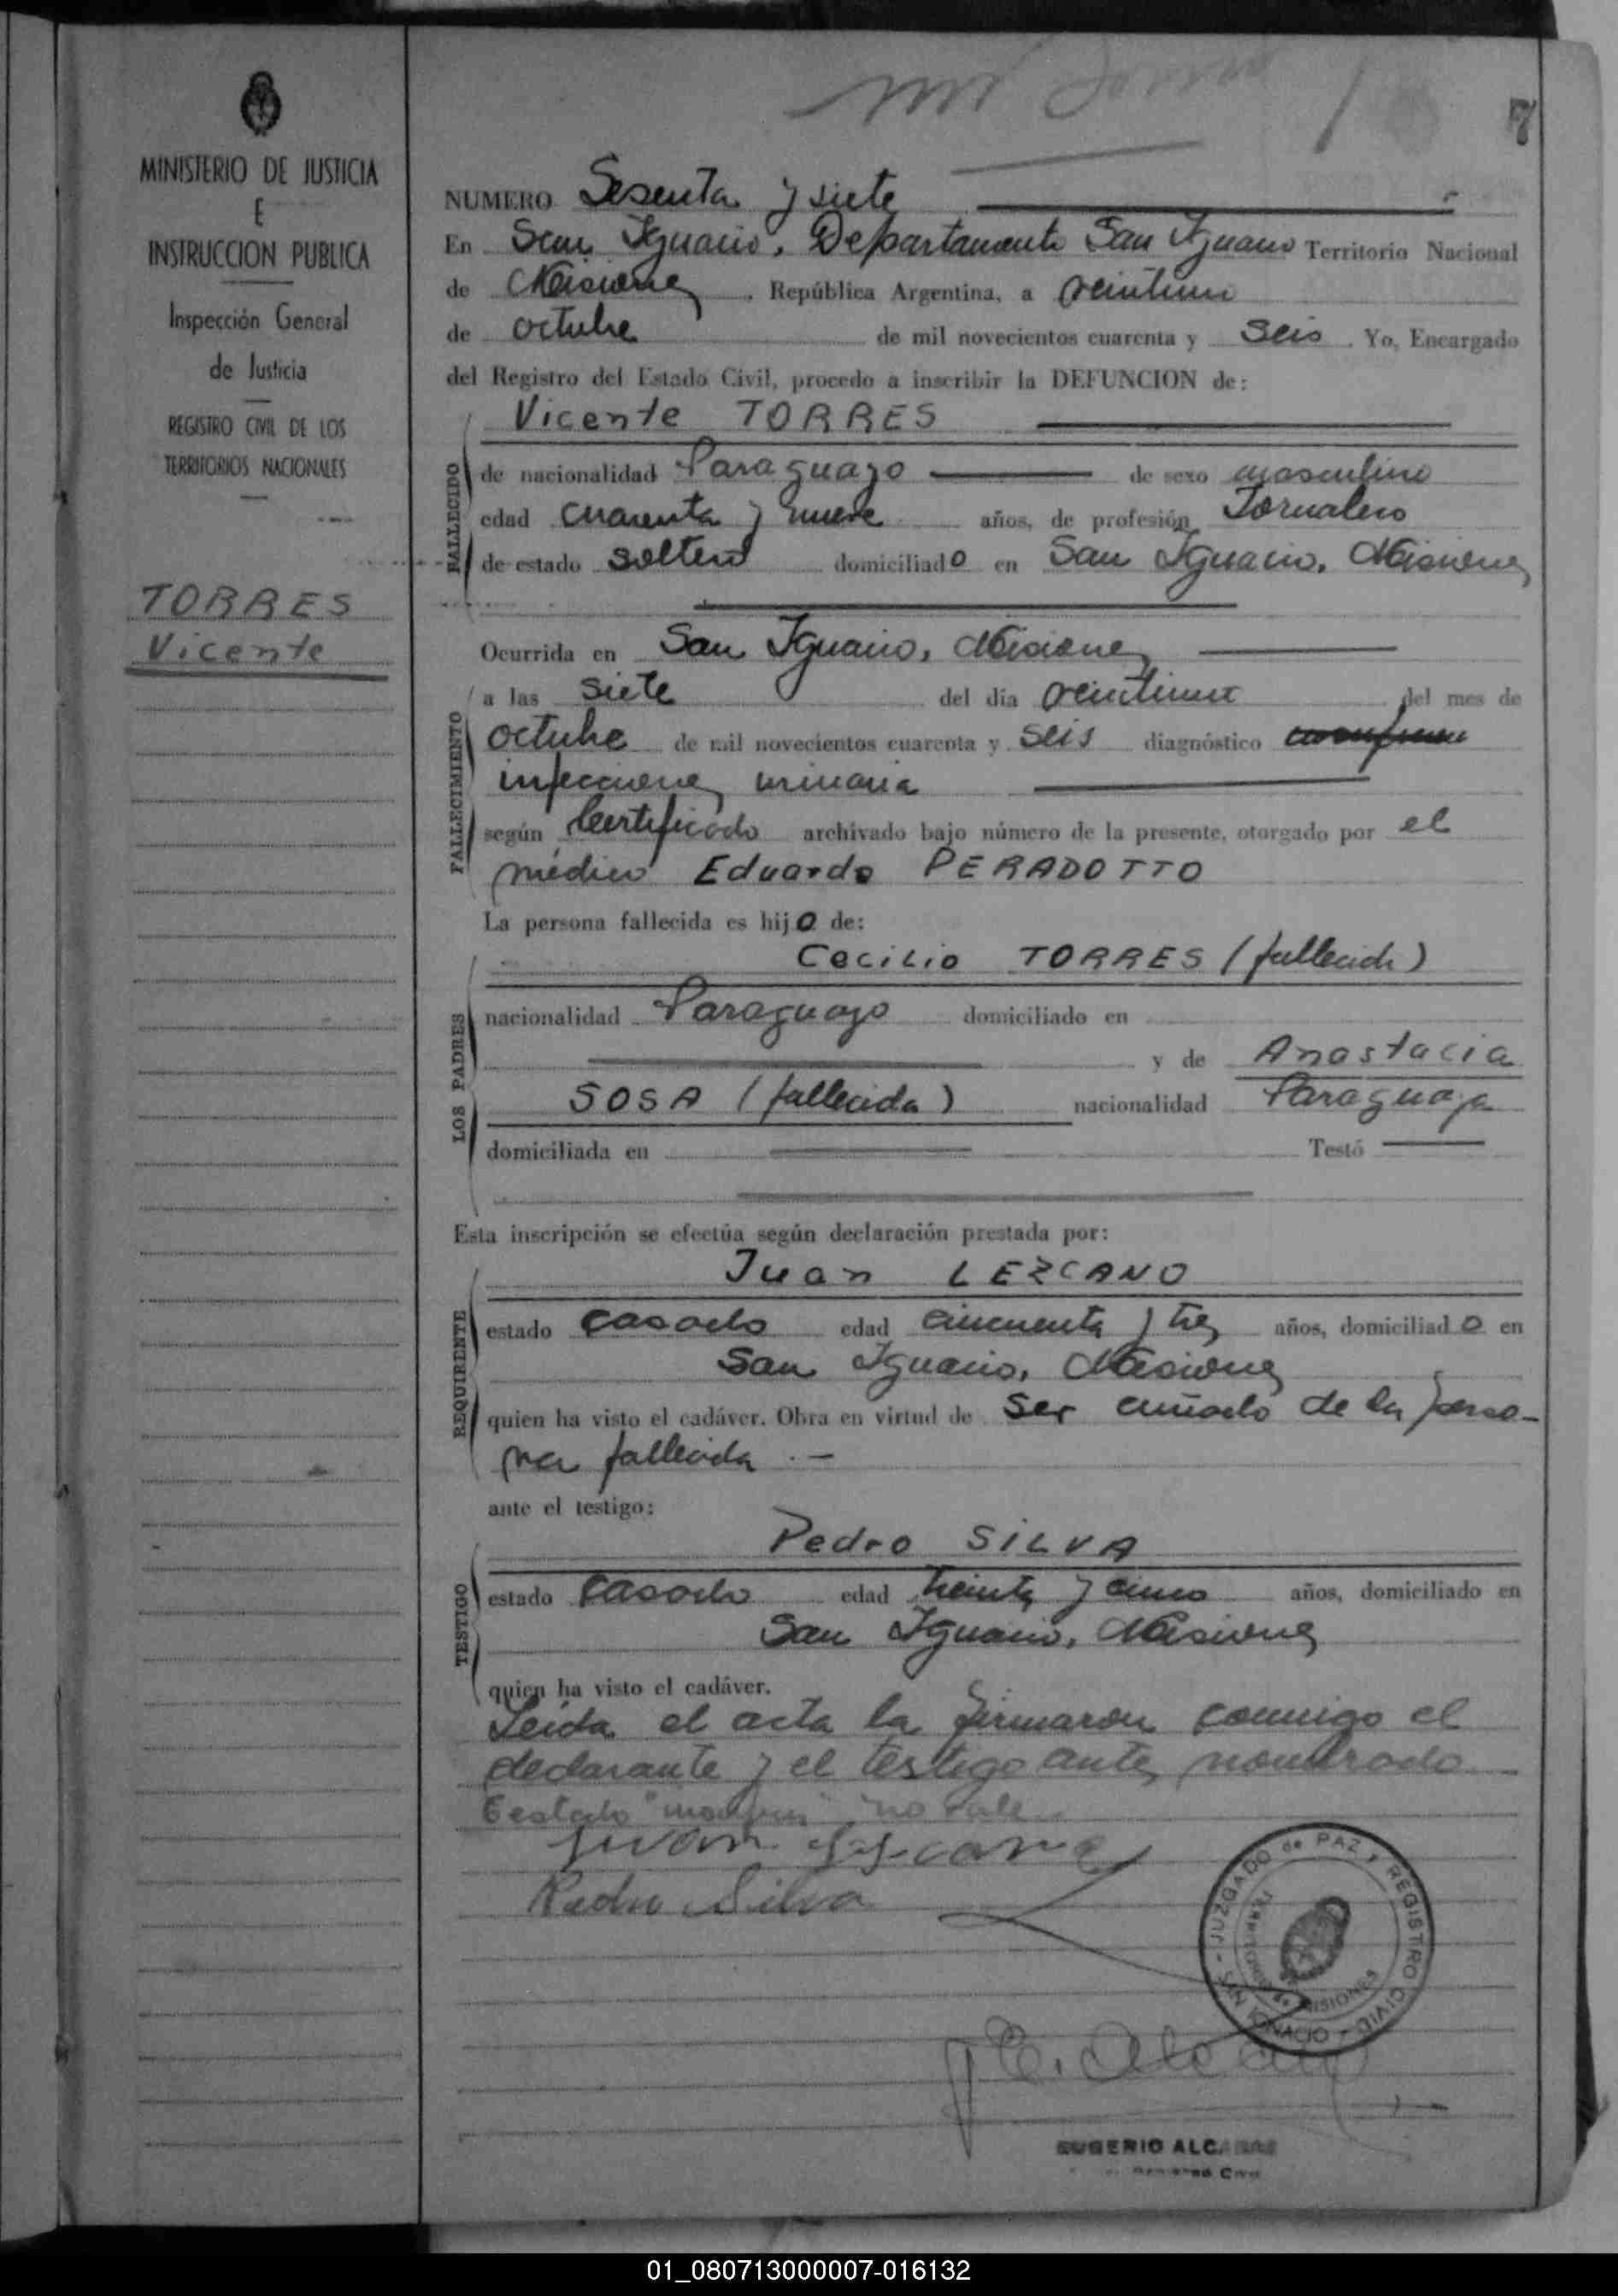 7
MINISTERIO DE JUSTICIA
E
INSTRUCCION PUBLICA
Inspección General
de Justicia
REGISTRO CIVIL DE LOS
TERRITORIOS NACIONALES
TORRES
Vicente
NUMERO Sesenta y siete
En San Ignacio, Departamento San Ignacio Territorio Nacional
de Misiones, República Argentina, a
de octubre de mil novecientos cuarenta y seis. Yo, Encargado
del Registro del Estado Civil, procedo a inscribir la DEFUNCION de:
Vicente TORRES
FALLECIDO
de nacionalidad Paraguayo de sexo masculino
edad cuarenta y nueve años, de profesión Jornalero
de estado soltero domiciliado en San Ignacio, Misiones
FALLECIMIENTO
Ocurrida en San Ignacio, Misiones
a las siete del día del mes de
octubre de mil novecientos cuarenta y seis diagnóstico
infecciones urinaria
según Certificado archivado bajo número de la presente, otorgado por el
médico Eduardo PERADOTTO
La persona fallecida es hijo de:
LOS PADRES
Cecilio TORRES (fallecido)
nacionalidad Paraguayo domiciliado en
y de Anastacia
SOSA (fallecida) nacionalidad Paraguaya
domiciliada en Testó
Esta inscripción se efectúa según declaración prestada por:
REQUIRENTE
Juan LEZCANO
estado casado edad cincuenta y tres años, domiciliado en
San Ignacio, Misiones
quien ha visto el cadáver. Obra en virtud de ser cuñado de la perso-
na fallecida .-
ante el testigo:
TESTIGO
Pedro SILVA
estado casado edad treinta y cinco años, domiciliado en
San Ignacio, Misiones
quien ha visto el cadáver.
Leida el acta la firmaron conmigo el
declarante y el testigo antes nombrado
Testado no vale
Juan
Pedro Silva
JUZGADO de PAZ y REGISTRO CIVIL - SAN IGNACIO -
MISIONES
EUGENIO ALC
01_080713000007-016132